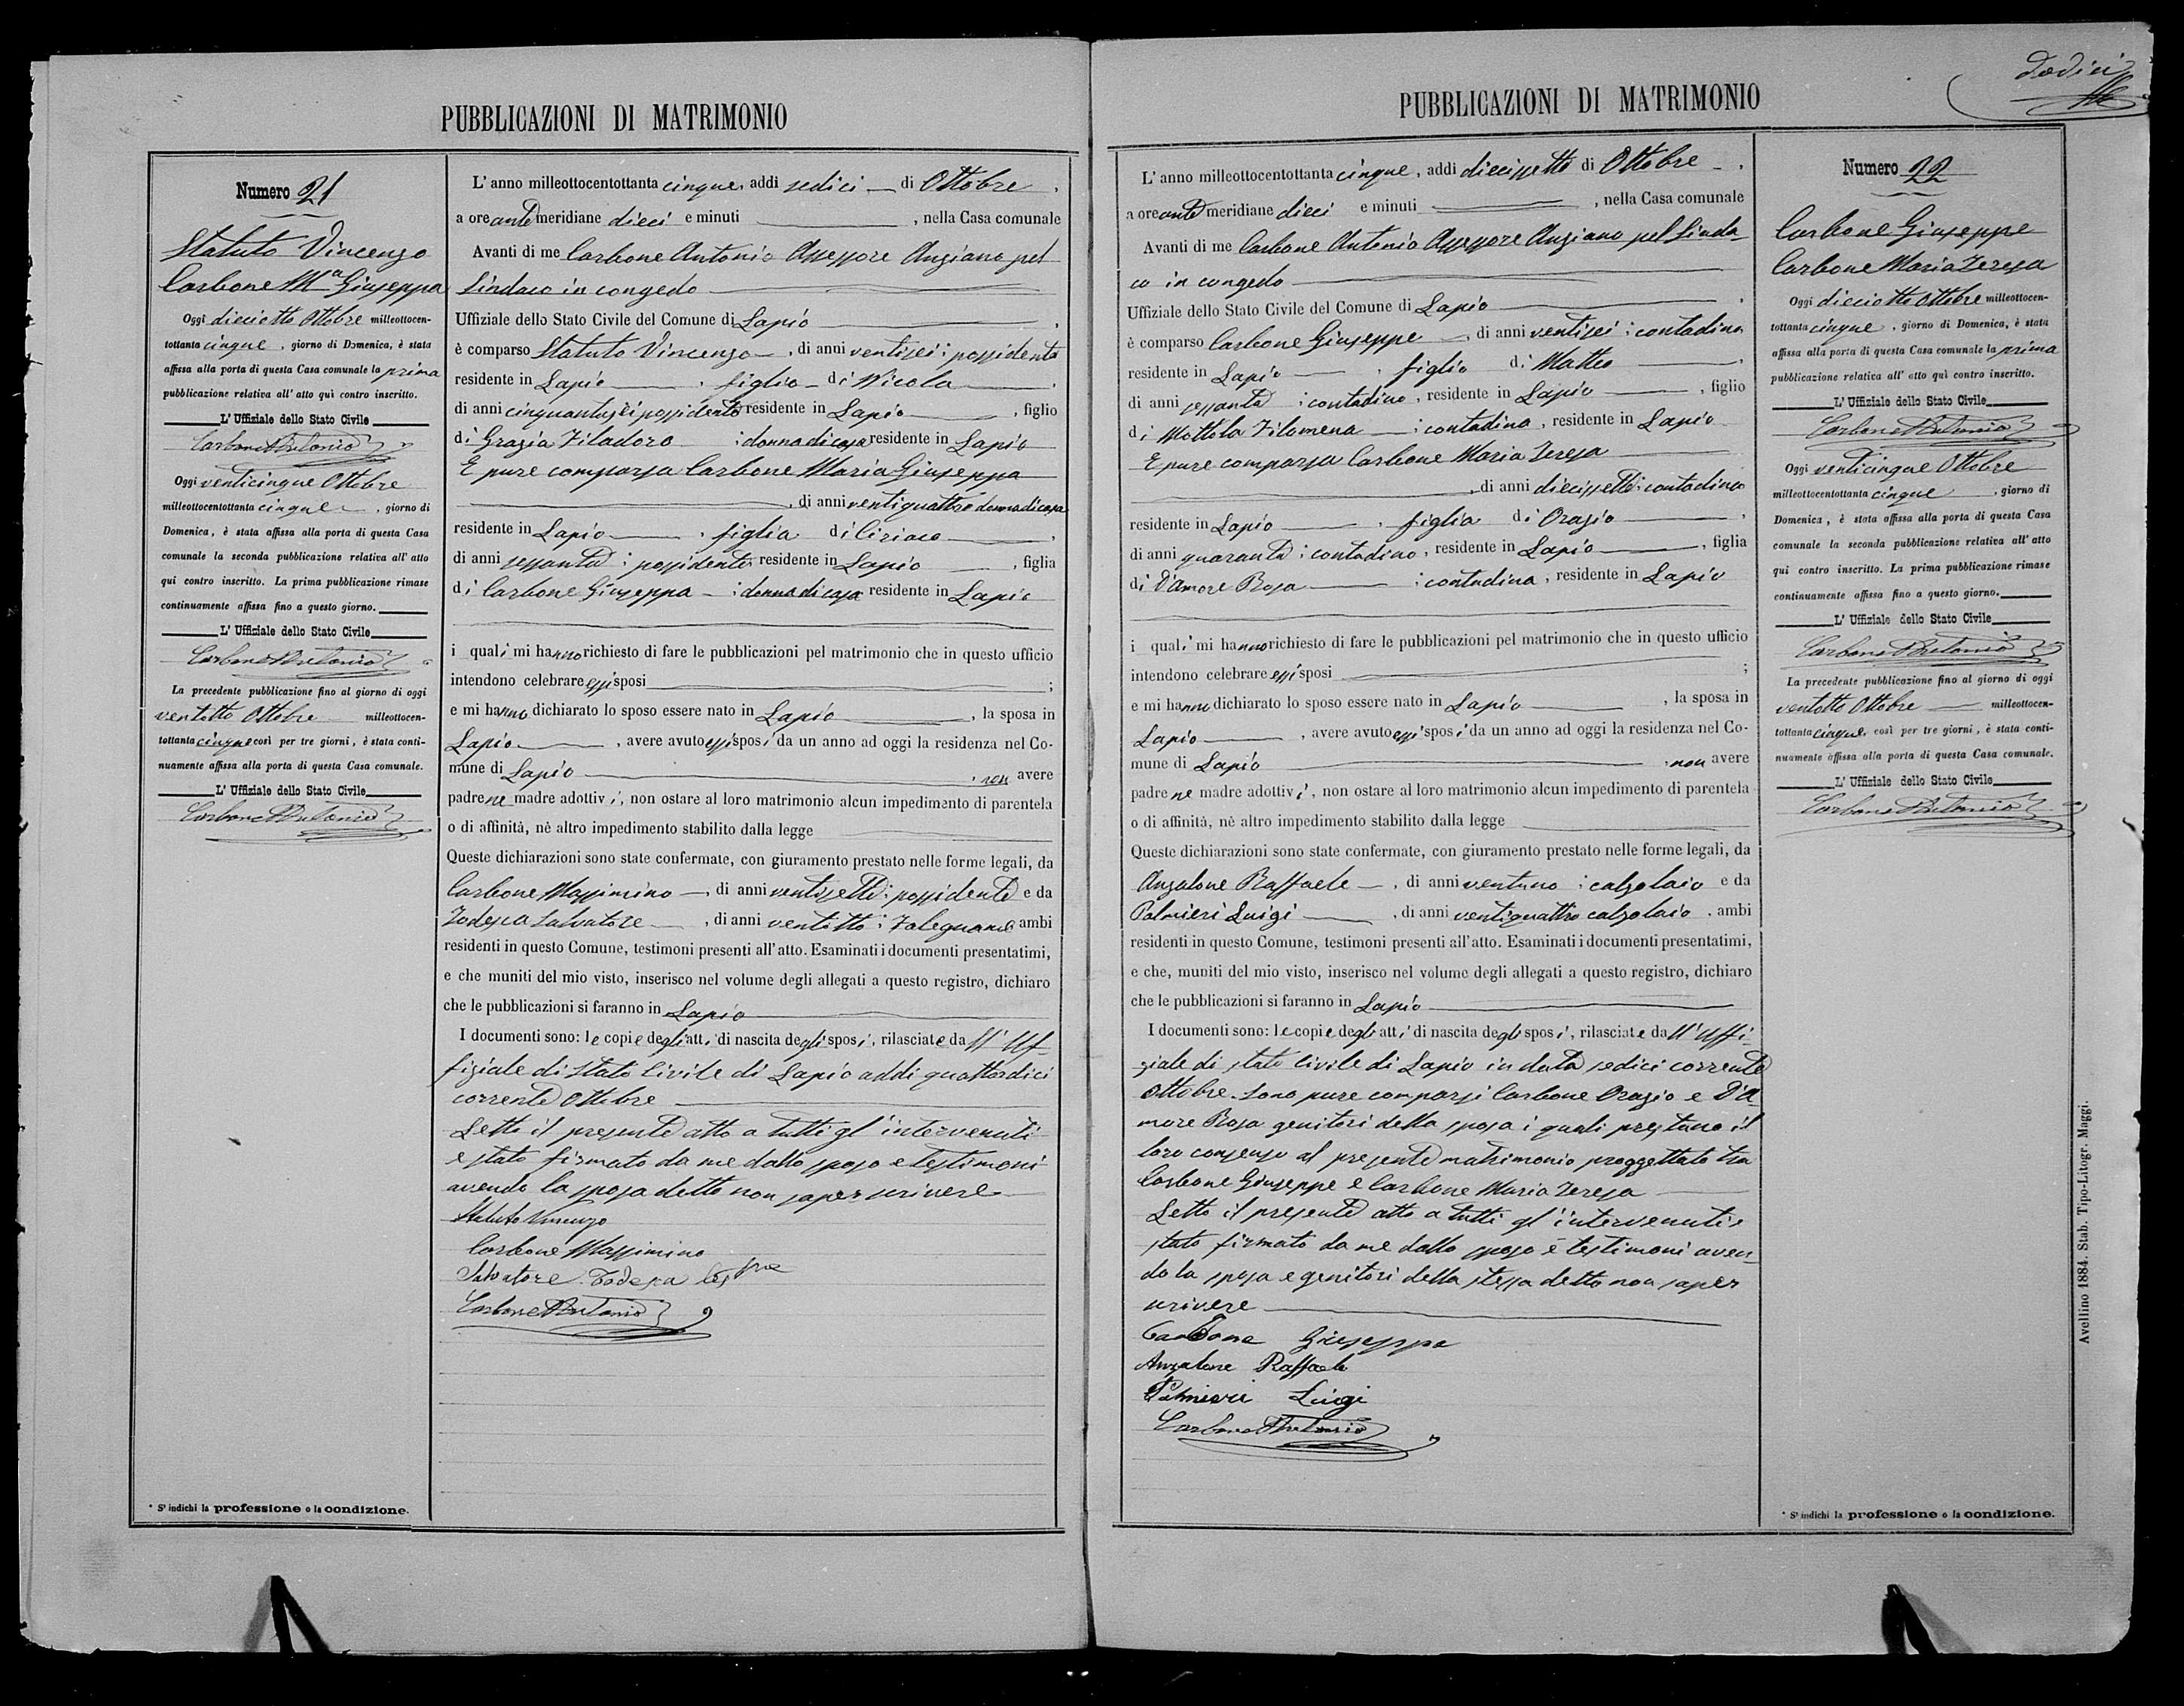 PUBBLICAZIONI DI MATRIMONIO
Numero 21
Statuto Vincenzo
Carbone Mª Giuseppa
Oggi dieciotto Ottobre milleottocen-
tottanta cinque, giorno di Domenica, è stata
affissa alla porta di questa Casa comunale la prima
pubblicazione relativa all' atto quì contro inscritto.
L' Uffiziale dello Stato Civile
Carbone Antonio
Oggi venticinque Ottobre
milleottocentottanta cinque, giorno di
Domenica, è stata affissa alla porta di questa Casa
comunale la seconda pubblicazione relativa all' atto
qui contro inscritto. La prima pubblicazione rimase
continuamente affissa fino a questo giorno.
L' Uffiziale dello Stato Civile
Carbone Antonio
La precedente pubblicazione fino al giorno di oggi
ventotto Ottobre milleottocen-
tottanta cinque così per tre giorni, è stata conti-
nuamente affissa alla porta di questa Casa comunale.
L' Uffiziale dello Stato Civile
Carbone Antonio
* S' indichi la professione o la condizione.
L' anno milleottocentottanta cinque, addi sedici di Ottobre,
a ore ante meridiane dieci e minuti , nella Casa comunale
Avanti di me Carbone Antonio Assessore Anziano pel
Sindaco in congedo
Uffiziale dello Stato Civile del Comune di Lapio,
è comparso Statuto Vincenzo, di anni ventisei; possidente
residente in Lapio, figlio di Nicola,
di anni cinquantasei possidente residente in Lapio, figlio
di Grazia Filadoro ; donna di casa residente in Lapio
E pure comparsa Carbone Maria Giuseppa
, di anni ventiquattro donna di casa
residente in Lapio, figlia di Ciriaco,
di anni sessanta; possidente residente in Lapio, figlia
di Carbone Giuseppa ; donna di casa residente in Lapio
i quali mi hanno richiesto di fare le pubblicazioni pel matrimonio che in questo ufficio
intendono celebrare essi sposi ;
e mi hanno dichiarato lo sposo essere nato in Lapio, la sposa in
Lapio, avere avuto essi sposi da un anno ad oggi la residenza nel Co-
mune di Lapio, non avere
padre ne madre adottivi, non ostare al loro matrimonio alcun impedimento di parentela
o di affinità, nè altro impedimento stabilito dalla legge
Queste dichiarazioni sono state confermate, con giuramento prestato nelle forme legali, da
Carbone Massimino, di anni ventisette; possidente e da
Todesca Salvatore, di anni ventotto; Falegname ambi
residenti in questo Comune, testimoni presenti all' atto. Esaminati i documenti presentatimi,
e che muniti del mio visto, inserisco nel volume degli allegati a questo registro, dichiaro
che le pubblicazioni si faranno in Lapio
I documenti sono: le copie degli atti di nascita degli sposi, rilasciate dall' Uf-
fiziale di Stato Civile di Lapio addi quattordici
corrente Ottobre
Letto il presente atto a tutti gl' intervenuti
e stato firmato da me dallo sposo e testimoni
avendo la sposa detto non saper scrivere
Statuto Vincenzo
Carbone Massimino
Salvatore Todesca
Carbone Antonio
PUBBLICAZIONI DI MATRIMONIO
dodici
L' anno milleottocentottanta cinque, addi diecissette di Ottobre,
a ore ante meridiane dieci e minuti , nella Casa comunale
Avanti di me Carbone Antonio Assessore Anziano pel Sinda-
co in congedo
Uffiziale dello Stato Civile del Comune di Lapio,
è comparso Carbone Giuseppe, di anni ventisei; contadino
residente in Lapio, figlio di Matteo,
di anni sessanta; contadino, residente in Lapio, figlio
di Mottola Filomena ; contadina, residente in Lapio
E pure comparsa Carbone Maria Teresa
, di anni diecissette; contadina
residente in Lapio, figlia di Orazio,
di anni quaranta; contadino, residente in Lapio, figlia
di D'Amore Rosa ; contadina, residente in Lapio
i quali mi hanno richiesto di fare le pubblicazioni pel matrimonio che in questo ufficio
intendono celebrare essi sposi ;
e mi hanno dichiarato lo sposo essere nato in Lapio, la sposa in
Lapio, avere avuto essi sposi da un anno ad oggi la residenza nel Co-
mune di Lapio, non avere
padre ne madre adottivi, non ostare al loro matrimonio alcun impedimento di parentela
o di affinità, nè altro impedimento stabilito dalla legge
Queste dichiarazioni sono state confermate, con giuramento prestato nelle forme legali, da
Anzalone Raffaele, di anni ventuno; calzolaio e da
Palmieri Luigi, di anni ventiquattro calzolaio, ambi
residenti in questo Comune, testimoni presenti all' atto. Esaminati i documenti presentatimi,
e che, muniti del mio visto, inserisco nel volume degli allegati a questo registro, dichiaro
che le pubblicazioni si faranno in Lapio
I documenti sono: le copie degli atti di nascita degli sposi, rilasciate dall' Uffi-
ziale di stato Civile di Lapio in data sedici corrente
Ottobre. Sono pure comparsi Carbone Orazio e D'A-
more Rosa genitori della sposa i quali prestano il
loro consenso al presente matrimonio proggettato tra
Carbone Giuseppe e Carbone Maria Teresa
Letto il presente atto a tutti gl' intervenuti e
stato firmato da me dallo sposo e testimoni aven-
do la sposa e genitori della stessa detto non saper
scrivere
Carbone Giuseppe
Anzalone Raffaele
Palmieri Luigi
Carbone Antonio
Numero 22
Carbone Giuseppe
Carbone Maria Teresa
Oggi dieciotto Ottobre milleottocen-
tottanta cinque, giorno di Domenica, è stata
affissa alla porta di questa Casa comunale la prima
pubblicazione relativa all' atto quì contro inscritto.
L' Uffiziale dello Stato Civile
Carbone Antonio
Oggi venticinque Ottobre
milleottocentottanta cinque, giorno di
Domenica, è stata affissa alla porta di questa Casa
comunale la seconda pubblicazione relativa all' atto
qui contro inscritto. La prima pubblicazione rimase
continuamente affissa fino a questo giorno.
L' Uffiziale dello Stato Civile
Carbone Antonio
La precedente pubblicazione fino al giorno di oggi
ventotto Ottobre milleottocen-
tottanta cinque, così per tre giorni, è stata conti-
nuamente affissa alla porta di questa Casa comunale.
L' Uffiziale dello Stato Civile
Carbone Antonio
* S' indichi la professione o la condizione.
Avellino 1884. Stab. Tipo-Litogr. Maggi.